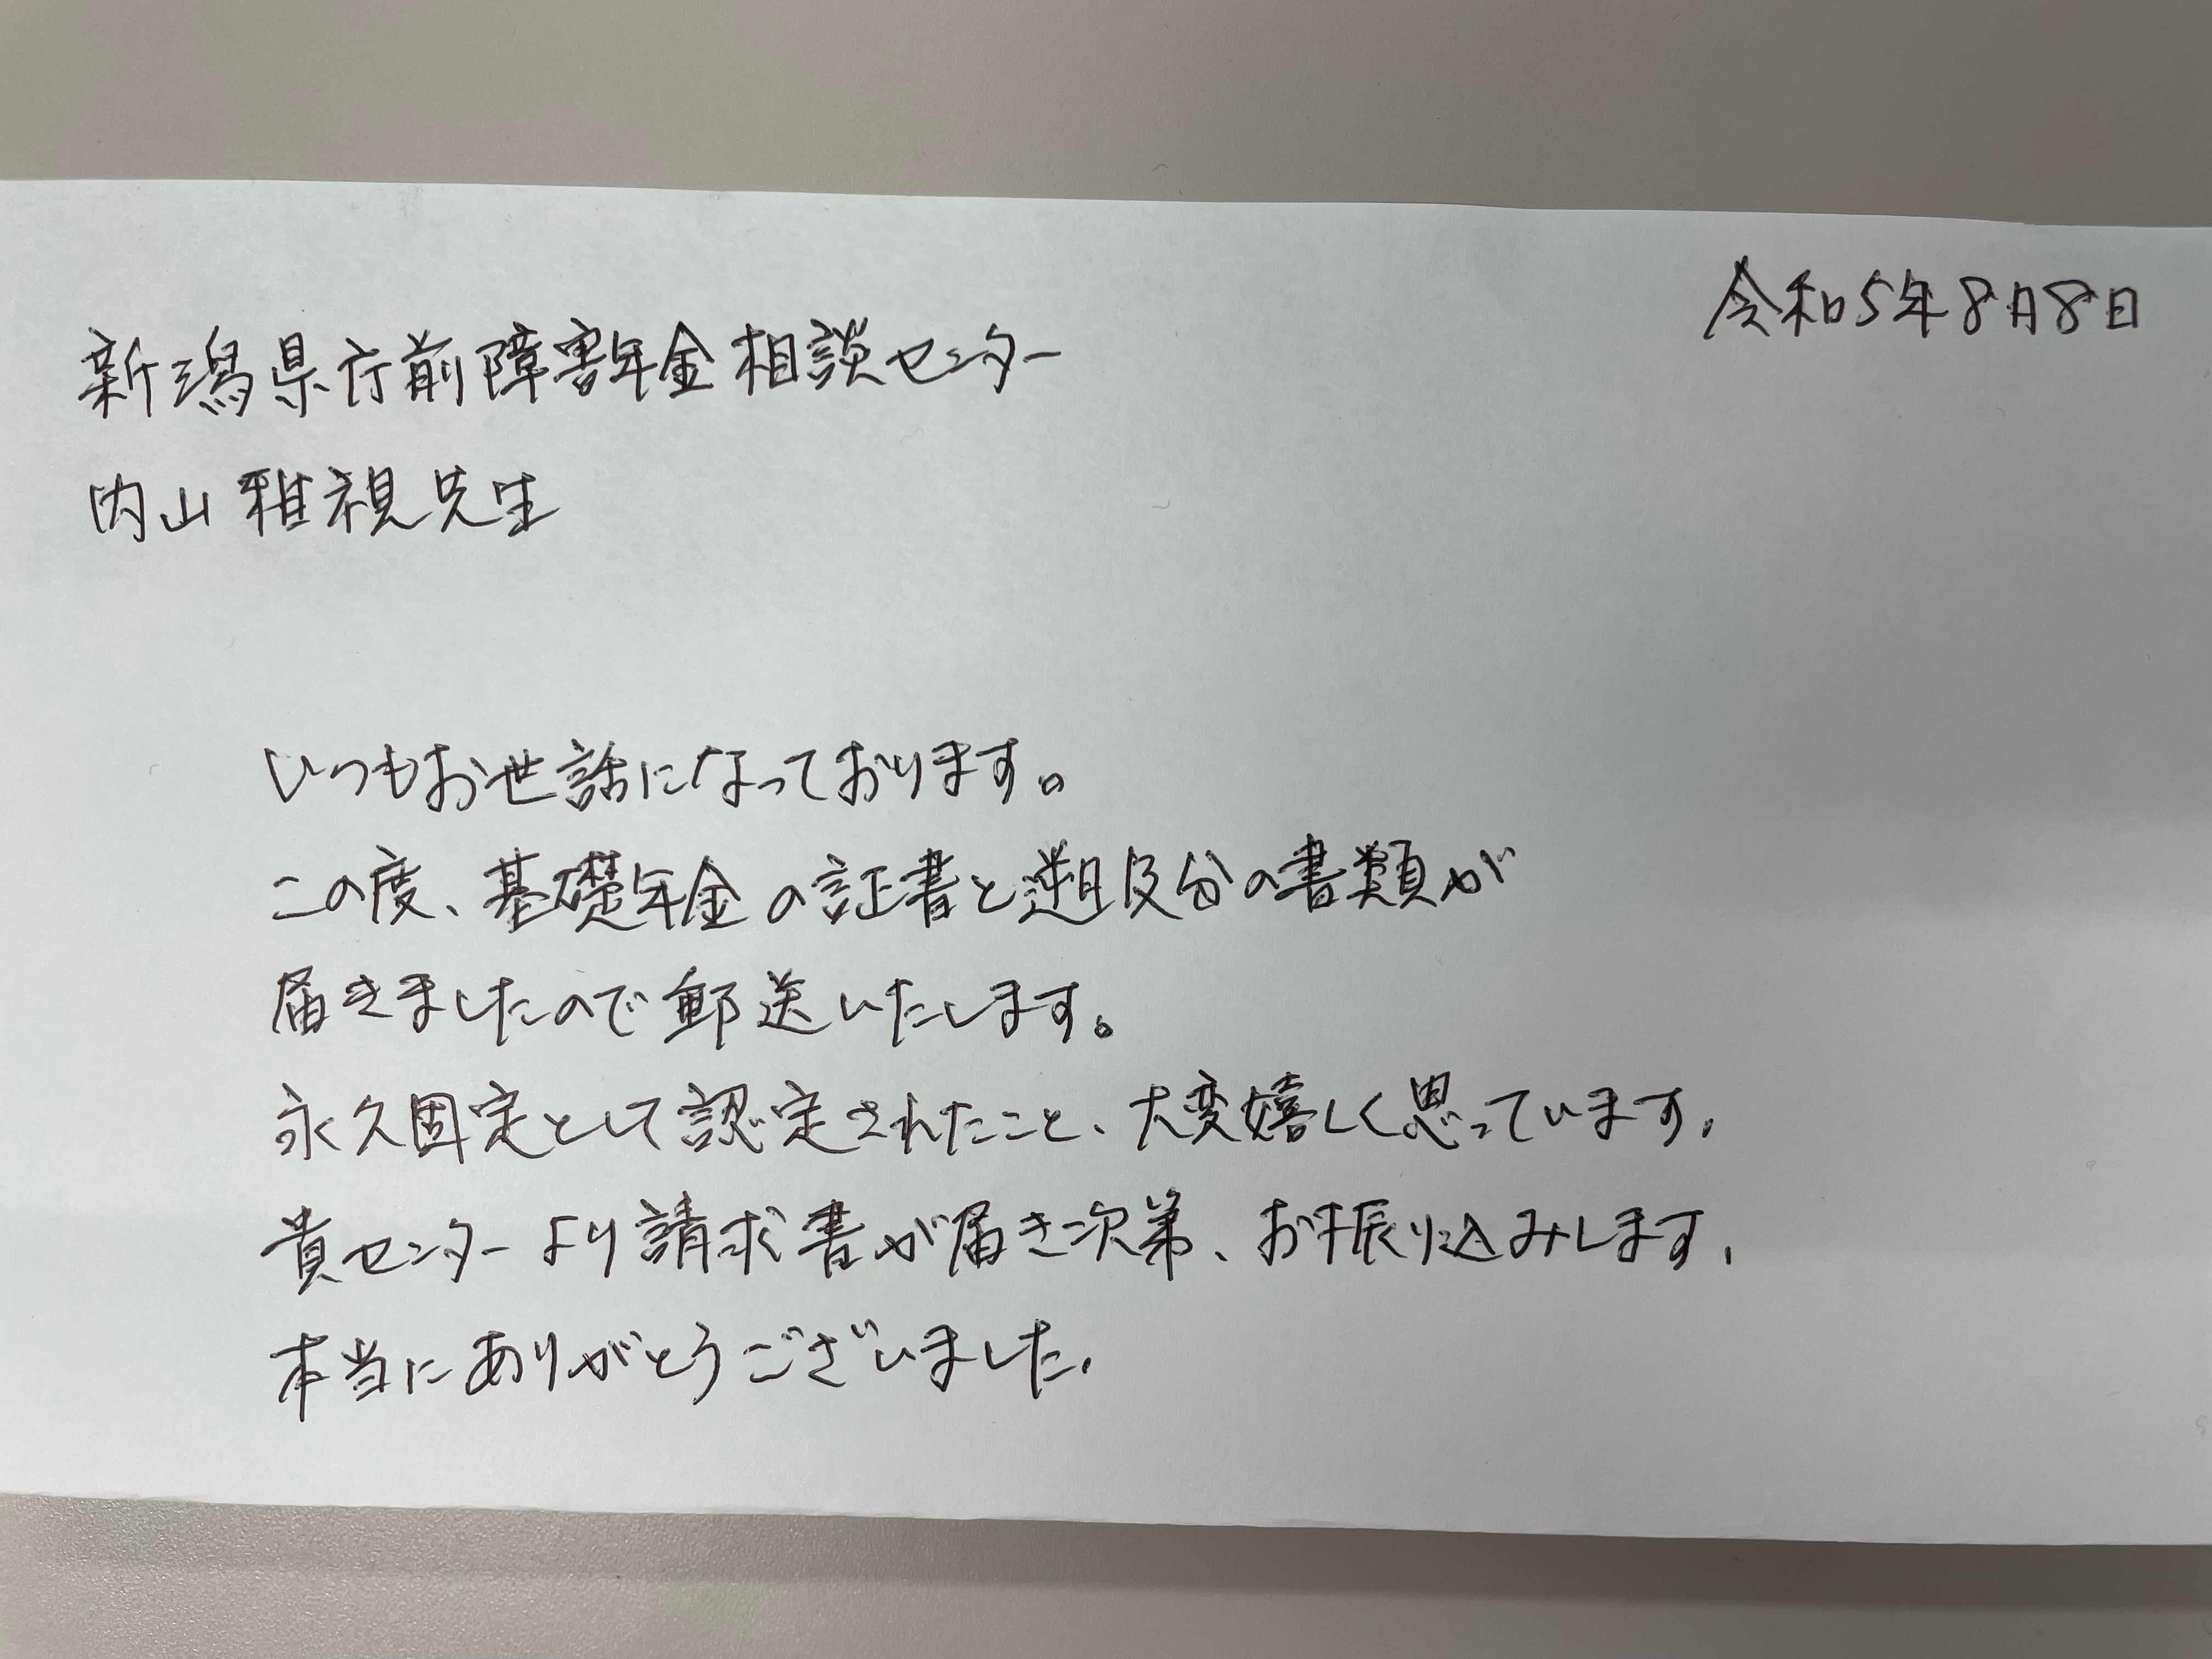 令和5年8月8日
新潟県庁前障害年金相談センター
内山 雅視先生
いつもお世話になっております。
この度、基礎年金の証書と遡及分の書類が
届きましたので郵送いたします。
永久固定として認定されたこと、大変嬉しく思っています。
貴センターより請求書が届き次第、お振り込みします。
本当にありがとうございました。